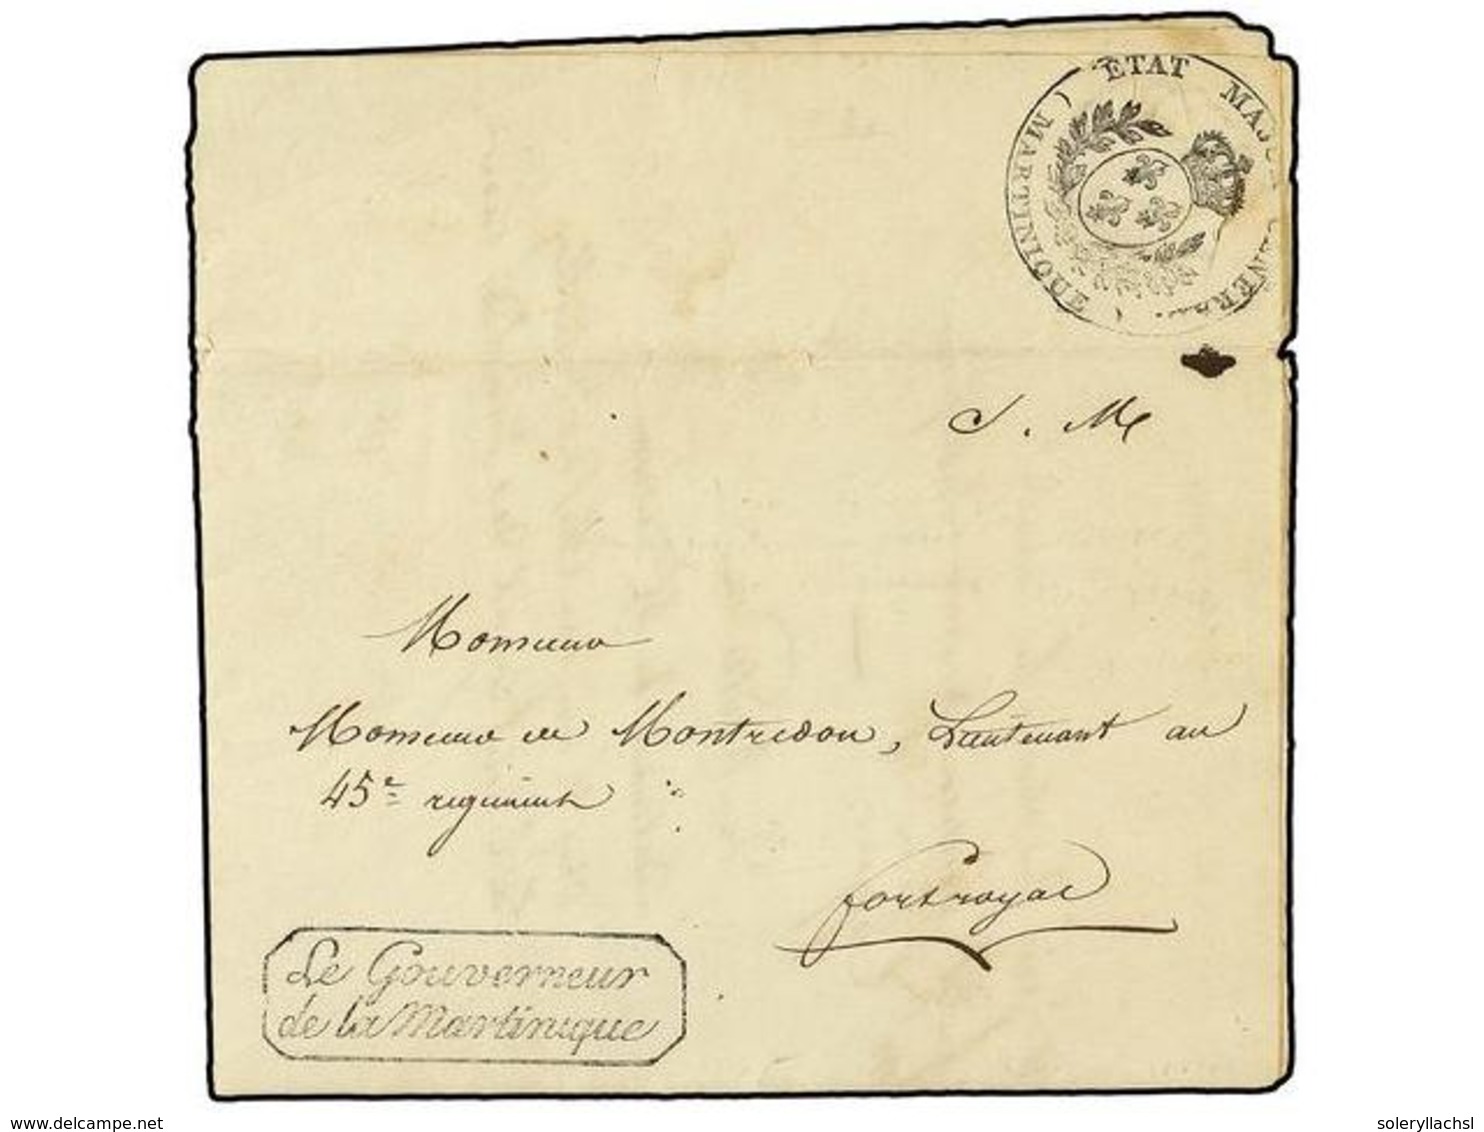 ETAT MAJOR GENERAL
( MARTINIQUE )
S. M
Monsieur
Monsieur de Montredon, Lieutenant au
45e régiment
fortroyal
Le Gouverneur
de la Martinique
delcampe.net
soleryllachsl